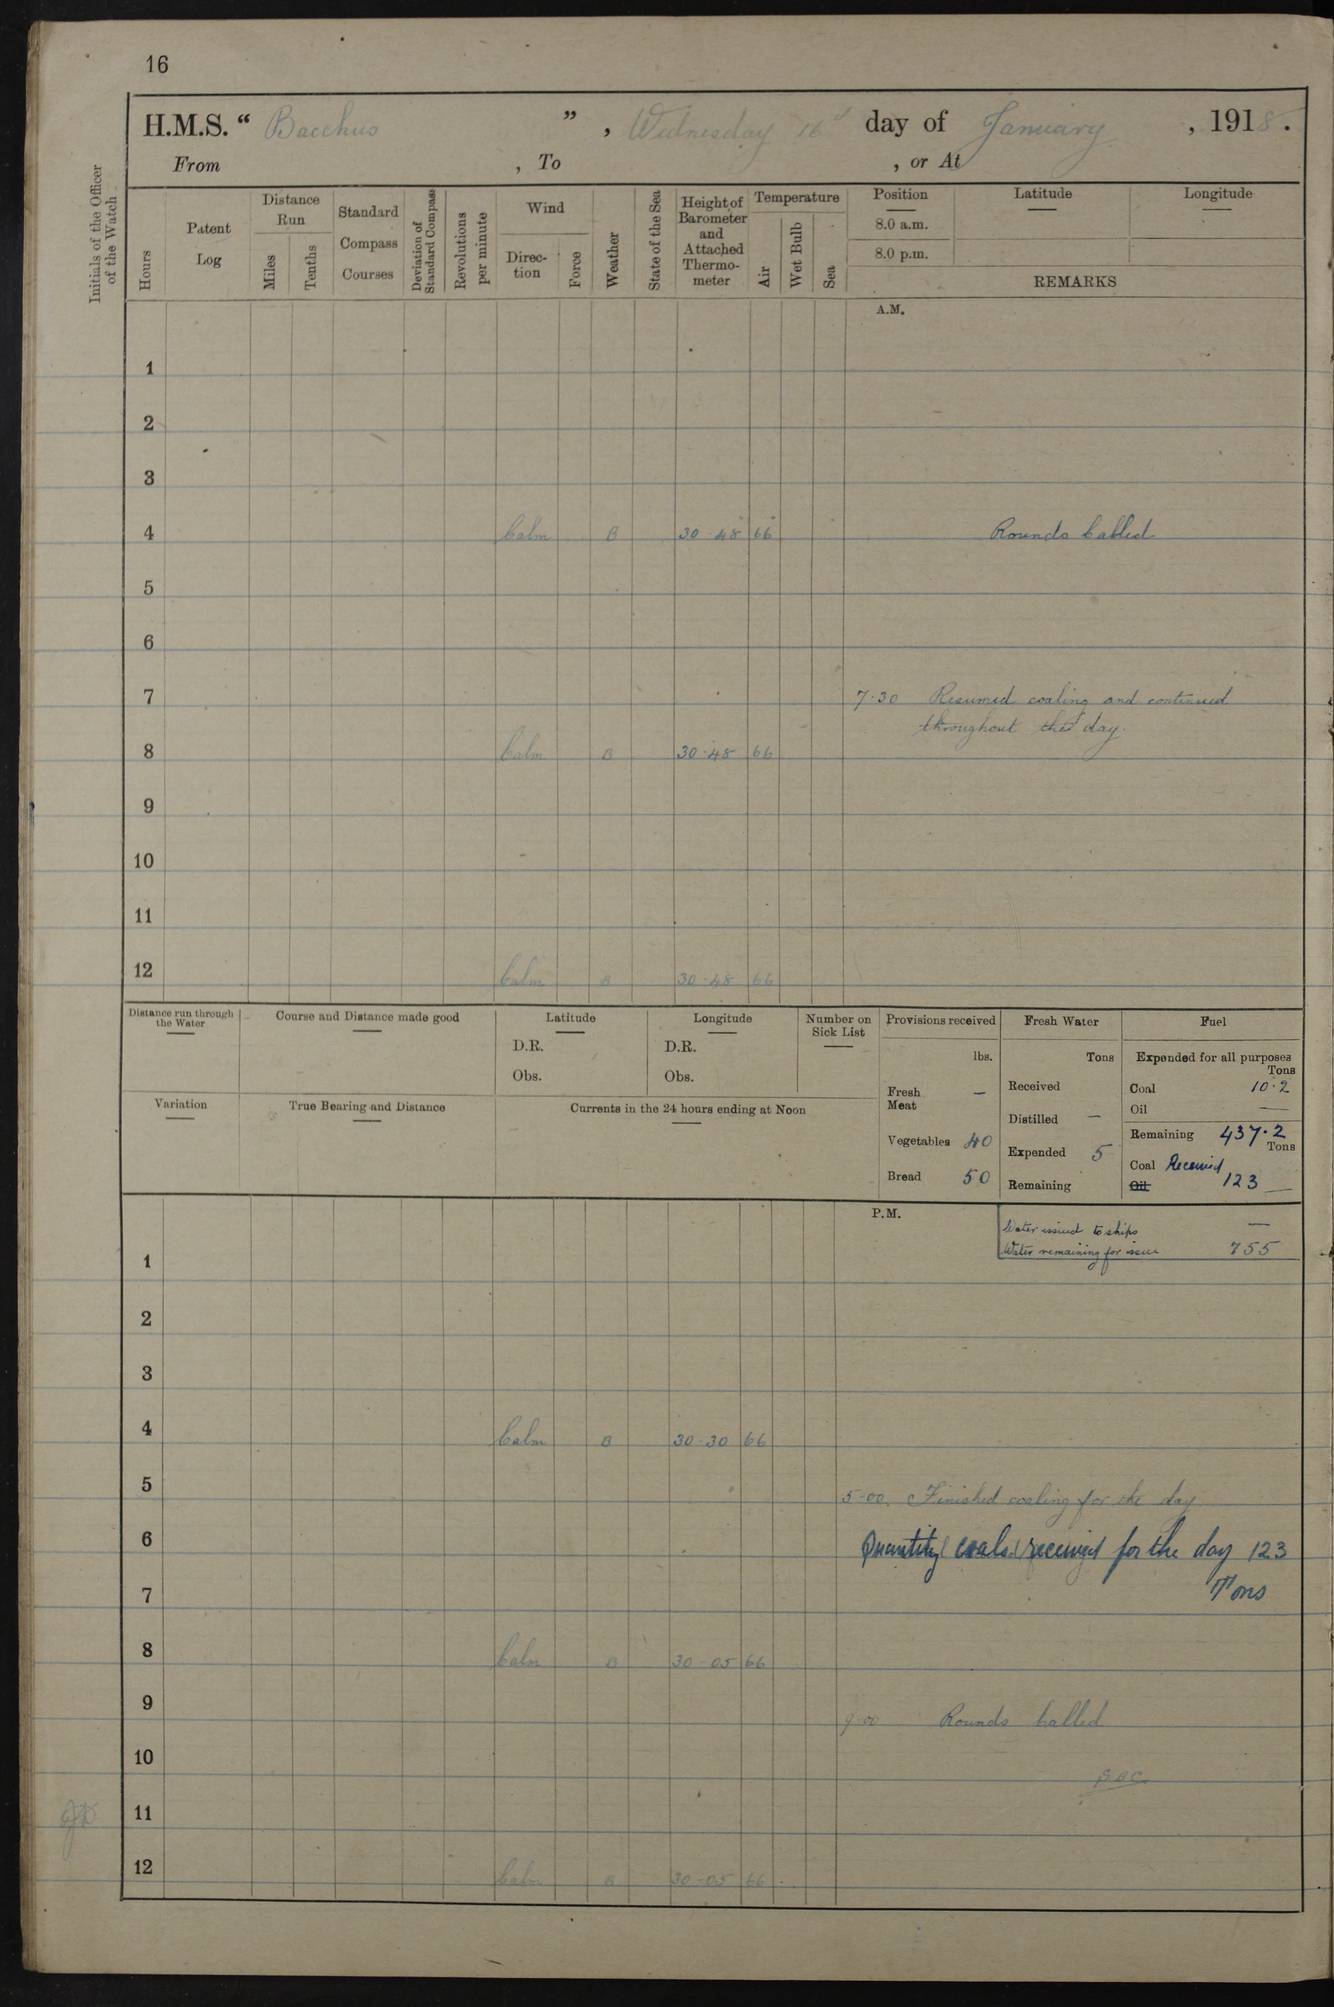 16
H.M.S. “ Bacchus ” , Wednesday 16th day of January , 1918 .
From , To , or At
Initials of the Officer of the Watch
Hours
Patent Log
Distance Run
Miles
Tenths
Standard Compass Courses
Deviation of Standard Compass
Revolutions per minute
Wind
Direc- tion
Force
Weather
State of the Sea
Height of Barometer and Attached Thermo- meter
Temperature
Air
Wet Bulb
Sea
Position Latitude Longitude
8.0 a.m.
8.0 p.m.
REMARKS
A.M.
1
2
3
4 Calm B 30·48 66 Rounds Called
5
6
7 7·30 Resumed coaling and continued
throughout the day.
8 Calm B 30·48 66
9
10
11
12 Calm B 30·48 66
Distance run through the Water
Course and Distance made good
Latitude
D.R.
Obs.
Longitude
D.R.
Obs.
Number on Sick List
Variation
True Bearing and Distance
Currents in the 24 hours ending at Noon
Provisions received
lbs.
Fresh Meat —
Vegetables 40
Bread 50
Fresh Water
Tons
Received
Distilled —
Expended 5
Remaining
Fuel
Expended for all purposes
Tons
Coal 10·2
Oil —
Remaining 437·2
Tons
Coal Received
Oil 123 —
P.M.
Water issued to ships —
Water remaining for issue 755
1
2
3
4 Calm B 30·30 66
5 5-00. Finished coaling for the day
6 Quantity coals received for the day 123
7 Tons
8 Calm B 30-05 66
9 9-00 Rounds Called
10
11
12 Calm B 30-05 66